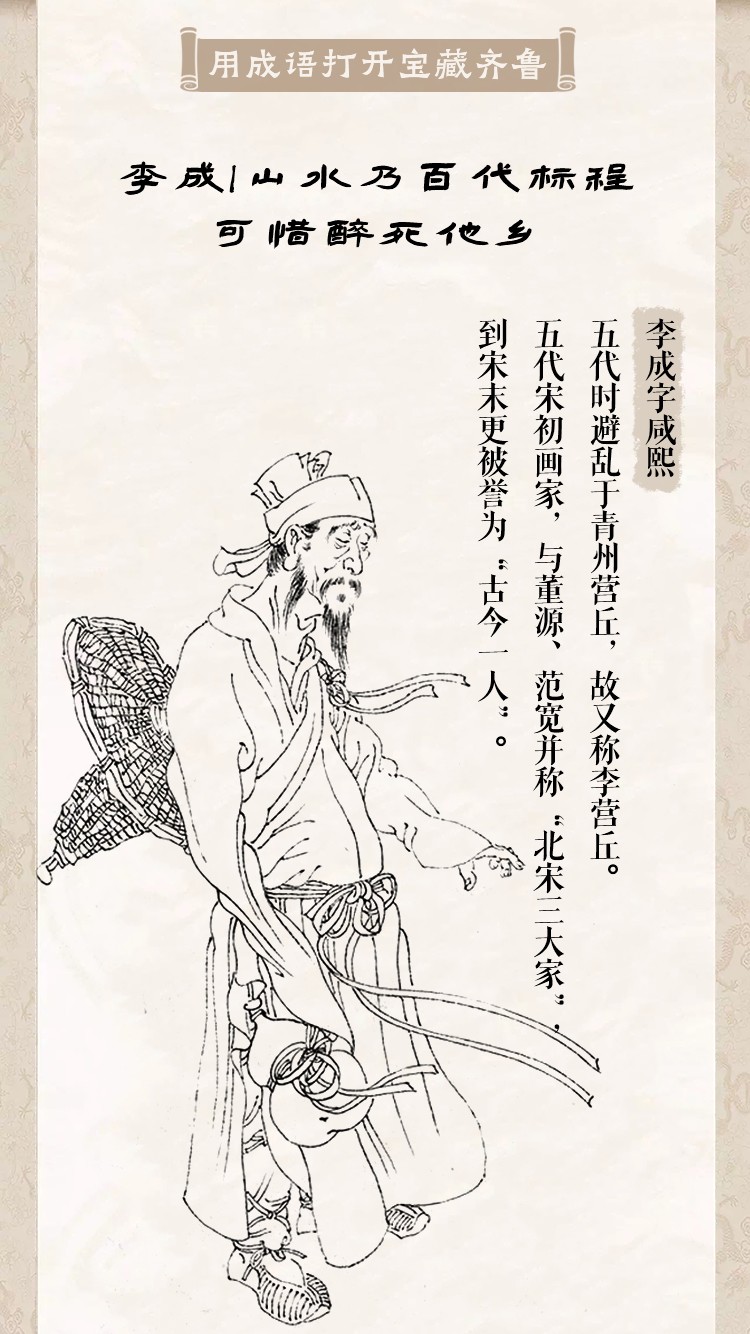 用成语打开宝藏齐鲁
李成|山水乃百代标程
可惜醉死他乡
李成字咸熙
五代时避乱于青州营丘，故又称李营丘。
五代宋初画家，与董源、范宽并称“北宋三大家”，
到宋末更被誉为“古今一人”。